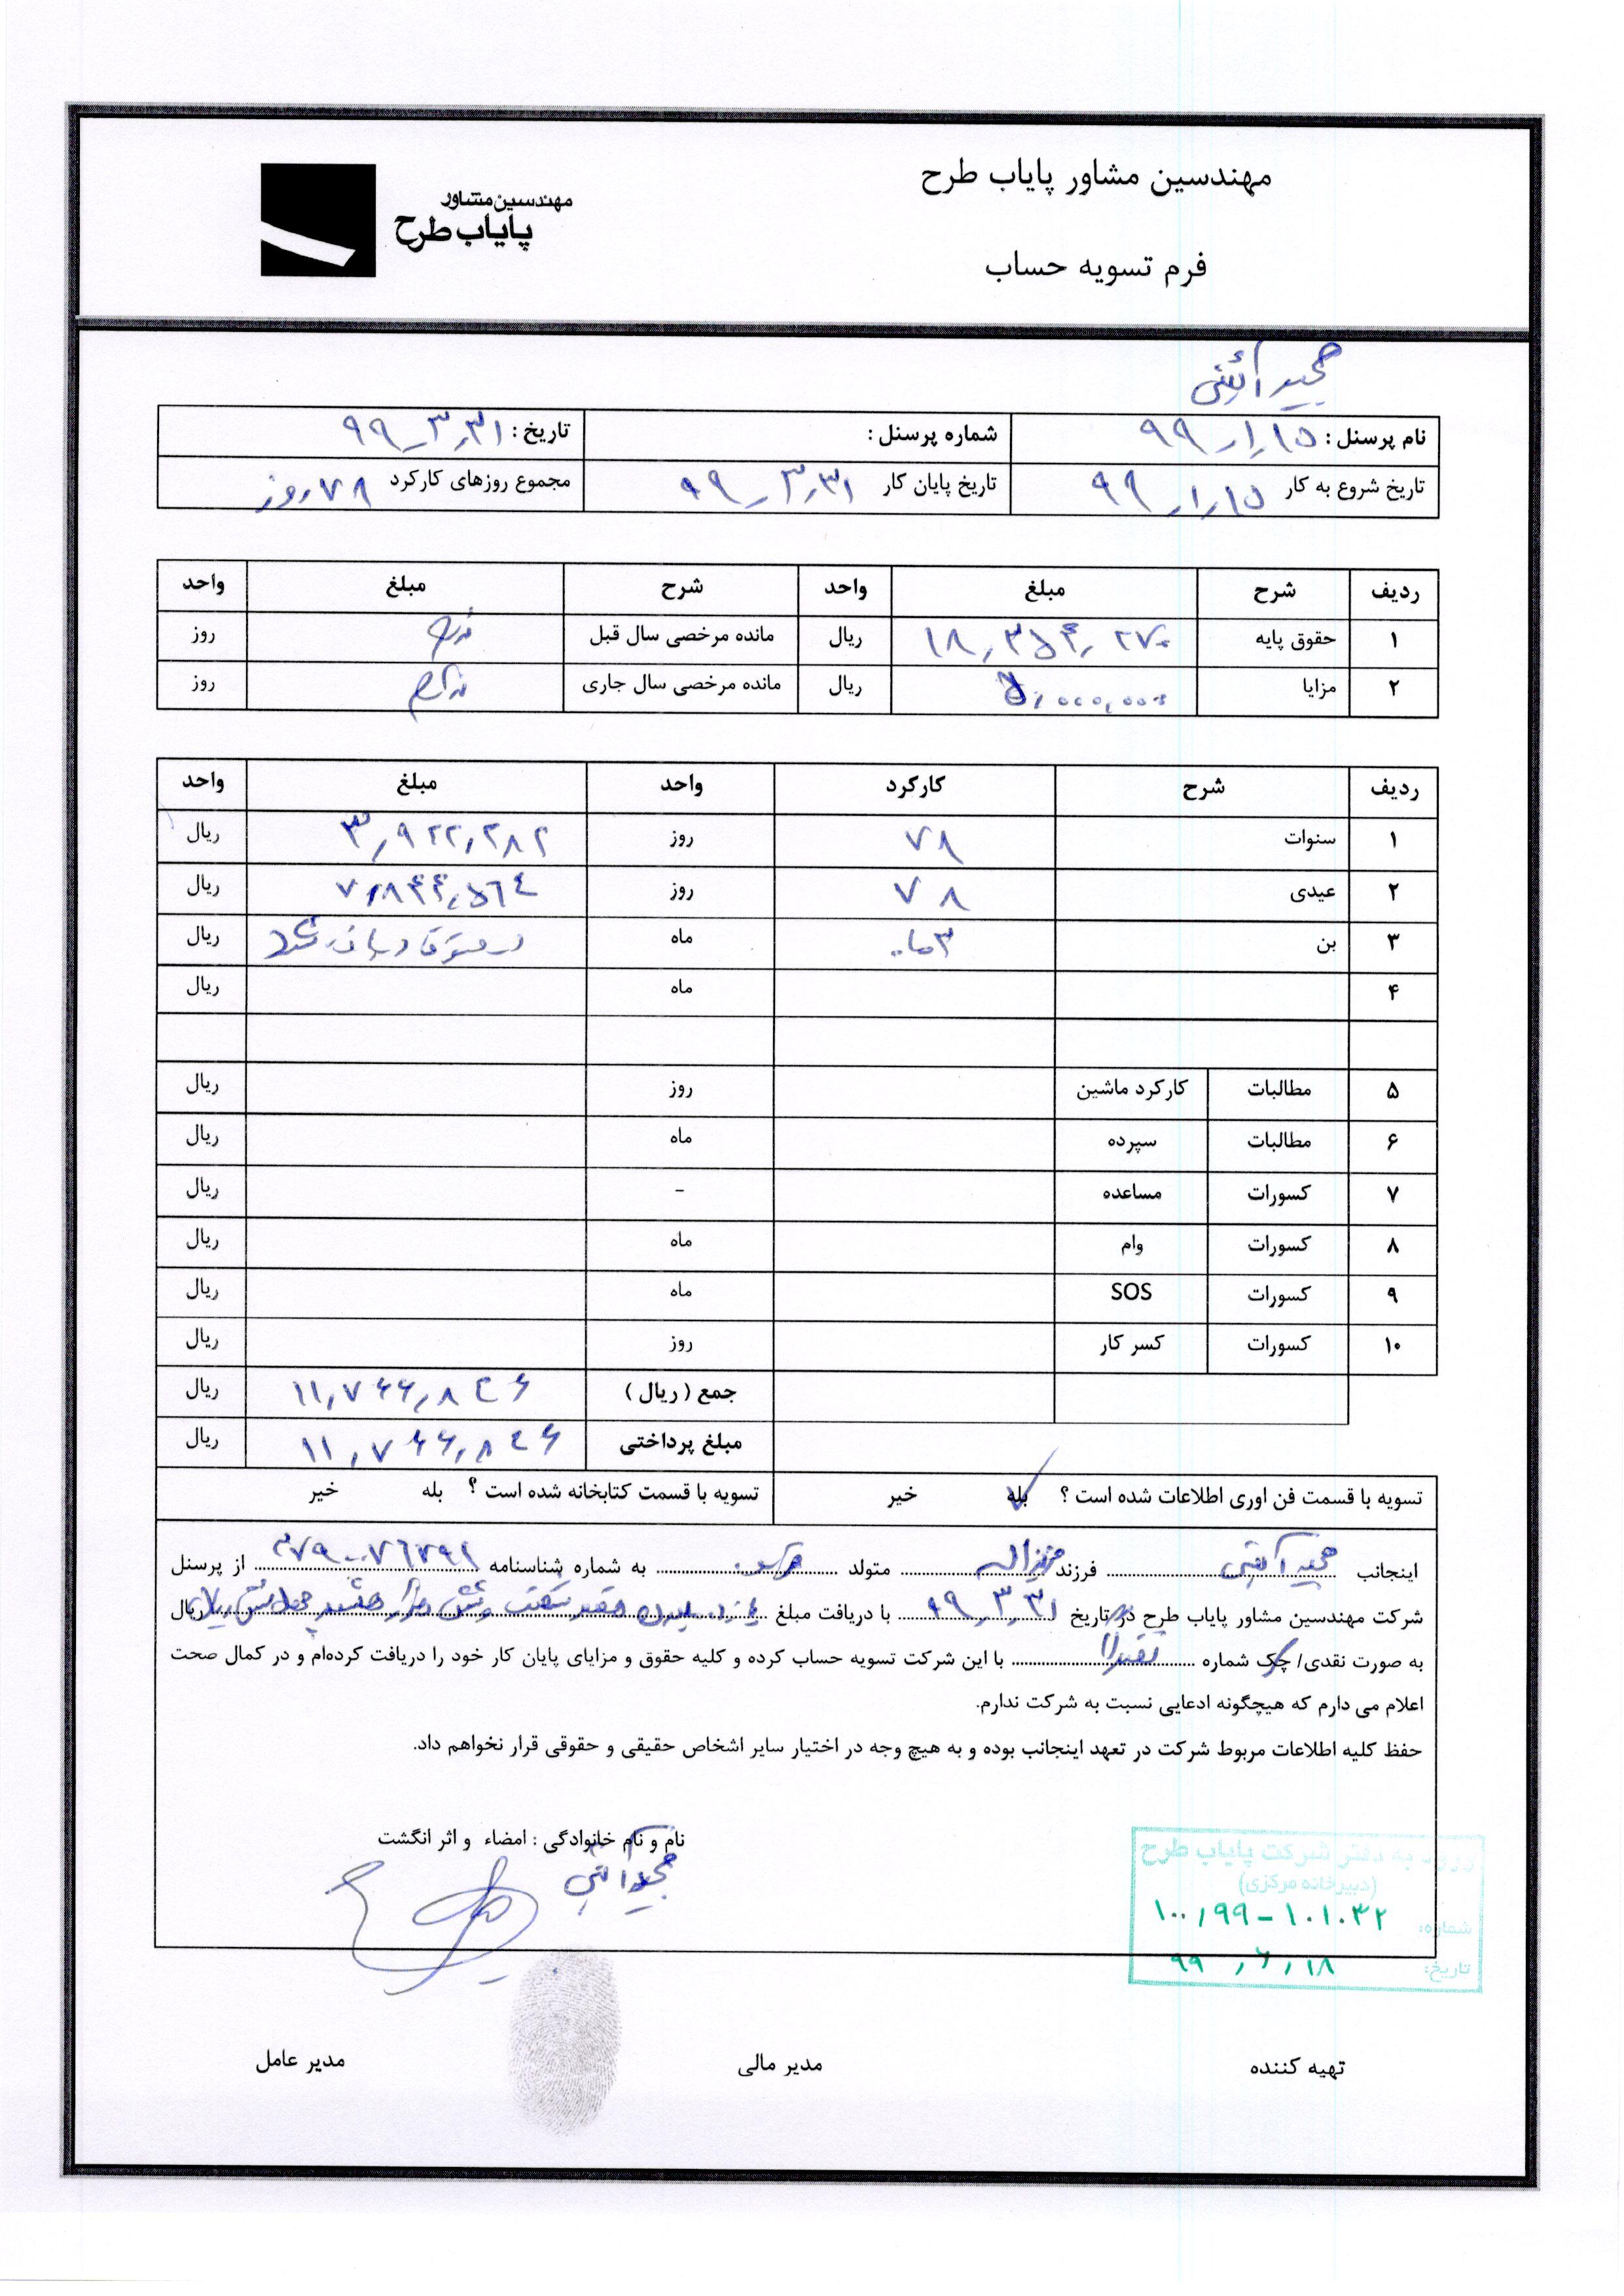 مهندسین مشاور پایاب طرح
مهندسین مشاور
پایاب طرح
فرم تسویه حساب
مجید آئینی
نام پرسنل : ۹۹ـ۱ـ۱۵
شماره پرسنل :
تاریخ : ۹۹ـ۳ـ۳۱
تاریخ شروع به کار ۹۹ـ۱ـ۱۵
تاریخ پایان کار ۹۹ـ۳ـ۳۱
مجموع روزهای کارکرد ۷۸ روز
ردیف شرح مبلغ واحد شرح مبلغ واحد
۱ حقوق پایه ۱۸,۳۵۴,۲۷۰ ریال مانده مرخصی سال قبل ندارم روز
۲ مزایا ریال مانده مرخصی سال جاری ندارم روز
ردیف شرح کارکرد واحد مبلغ واحد
۱ سنوات ۷۸ روز ۳,۹۲۲,۲۸۲ ریال
۲ عیدی ۷۸ روز ۷,۸۴۴,۵۶۴ ریال
۳ بن ۳ ماه ماه ریال
۴ ماه ریال
۵ مطالبات کارکرد ماشین روز ریال
۶ مطالبات سپرده ماه ریال
۷ کسورات مساعده - ریال
۸ کسورات وام ماه ریال
۹ کسورات SOS ماه ریال
۱۰ کسورات کسر کار روز ریال
جمع ( ریال ) ۱۱,۷۶۶,۸۴۶ ریال
مبلغ پرداختی ۱۱,۷۶۶,۸۴۶ ریال
تسویه با قسمت فن اوری اطلاعات شده است ؟ بله خیر تسویه با قسمت کتابخانه شده است ؟ بله خیر
اینجانب مجید آئینی فرزند عزیزاله متولد به شماره شناسنامه از پرسنل
شرکت مهندسین مشاور پایاب طرح در تاریخ ۹۹ـ۳ـ۳۱ با دریافت مبلغ یازده میلیون هفتصد شصت و شش هزار هشتصد چهل شش ریال ریال
به صورت نقدی/ چک شماره نقداً با این شرکت تسویه حساب کرده و کلیه حقوق و مزایای پایان کار خود را دریافت کرده‌ام و در کمال صحت
اعلام می دارم که هیچگونه ادعایی نسبت به شرکت ندارم.
حفظ کلیه اطلاعات مربوط شرکت در تعهد اینجانب بوده و به هیچ وجه در اختیار سایر اشخاص حقیقی و حقوقی قرار نخواهم داد.
نام و نام خانوادگی : امضاء و اثر انگشت
مجید آئینی
ورود به دفتر شرکت پایاب طرح
(دبیرخانه مرکزی)
شماره: ۱۰۰,۹۹-۱۰۱۰۳۲
تاریخ: ۹۹,۶,۱۸
تهیه کننده
مدیر مالی
مدیر عامل